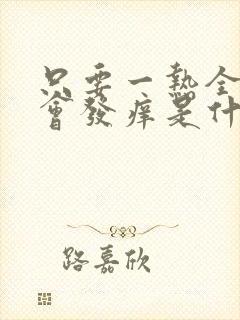 只要一热全
會發痒是什
路嘉欣